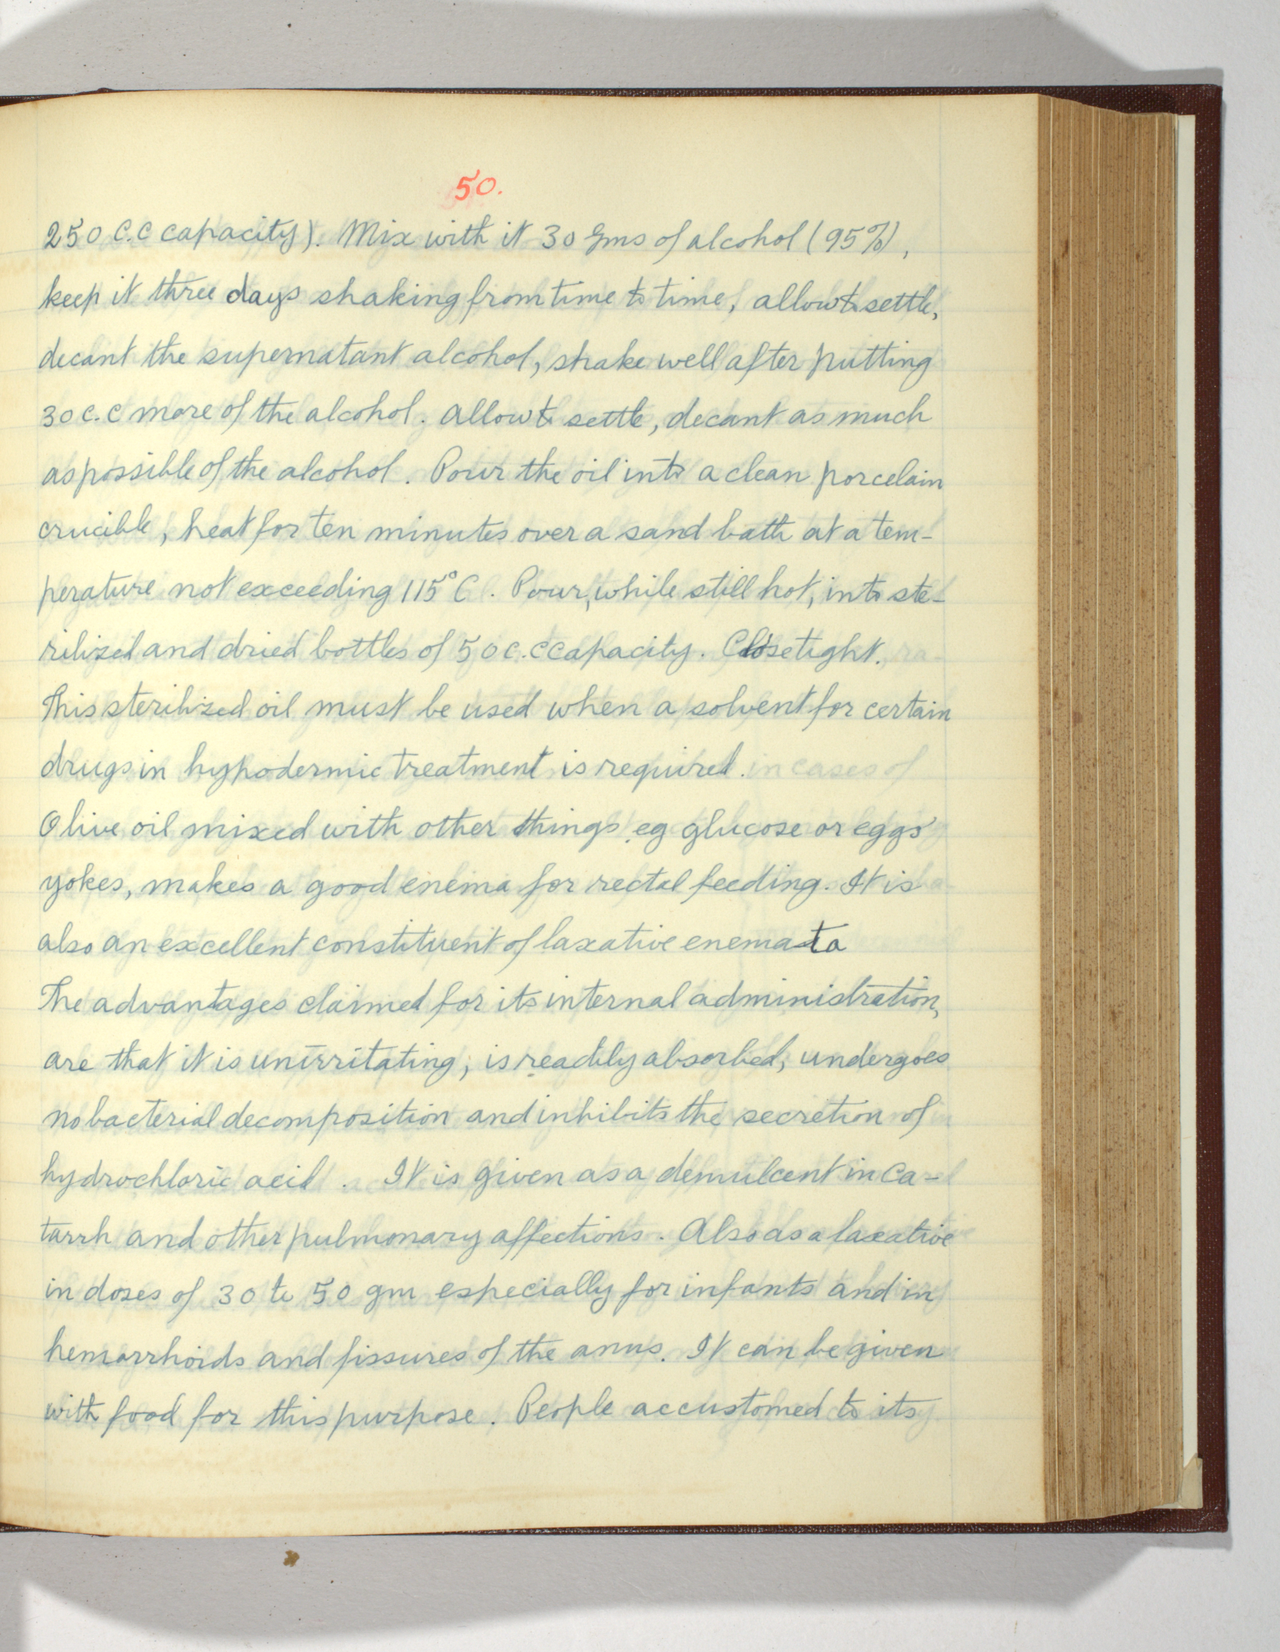 50.
250 C.C capacity). Mix with it 30 Gms of alcohol (95%),
keep it three days shaking from time to time, allow to settle,
decant the supernatant alcohol, shake well after putting
30 c.c more of the alcohol. allow to settle, decant as much
as possible of the alcohol. Pour the oil into a clean porcelain
crucible, heat for ten minutes over a sand bath at a tem-
perature not exceeding 115° C. Pour, while still hot, into ste-
rilized and dried bottles of 50 c.c capacity. Close tight.
This sterilized oil must be used when a solvent for certain
drugs in hypodermic treatment is required.
Olive oil mixed with other things eg glucose or eggs'
yokes, makes a good enema for rectal feeding. It is
also an excellent constituent of laxative enemata
The advantages claimed for its internal administration,
are that it is unirritating, is readily absorbed, undergoes
no bacterial decomposition and inhibits the secretion of
hydrochloric acid. It is given as a demulcent in Ca-
tarrh and other pulmonary affections. Also as a laxative
in doses of 30 to 50 gm especially for infants and in
hemorrhoids and fissures of the anus. It can be given
with food for this purpose. People accustomed to its